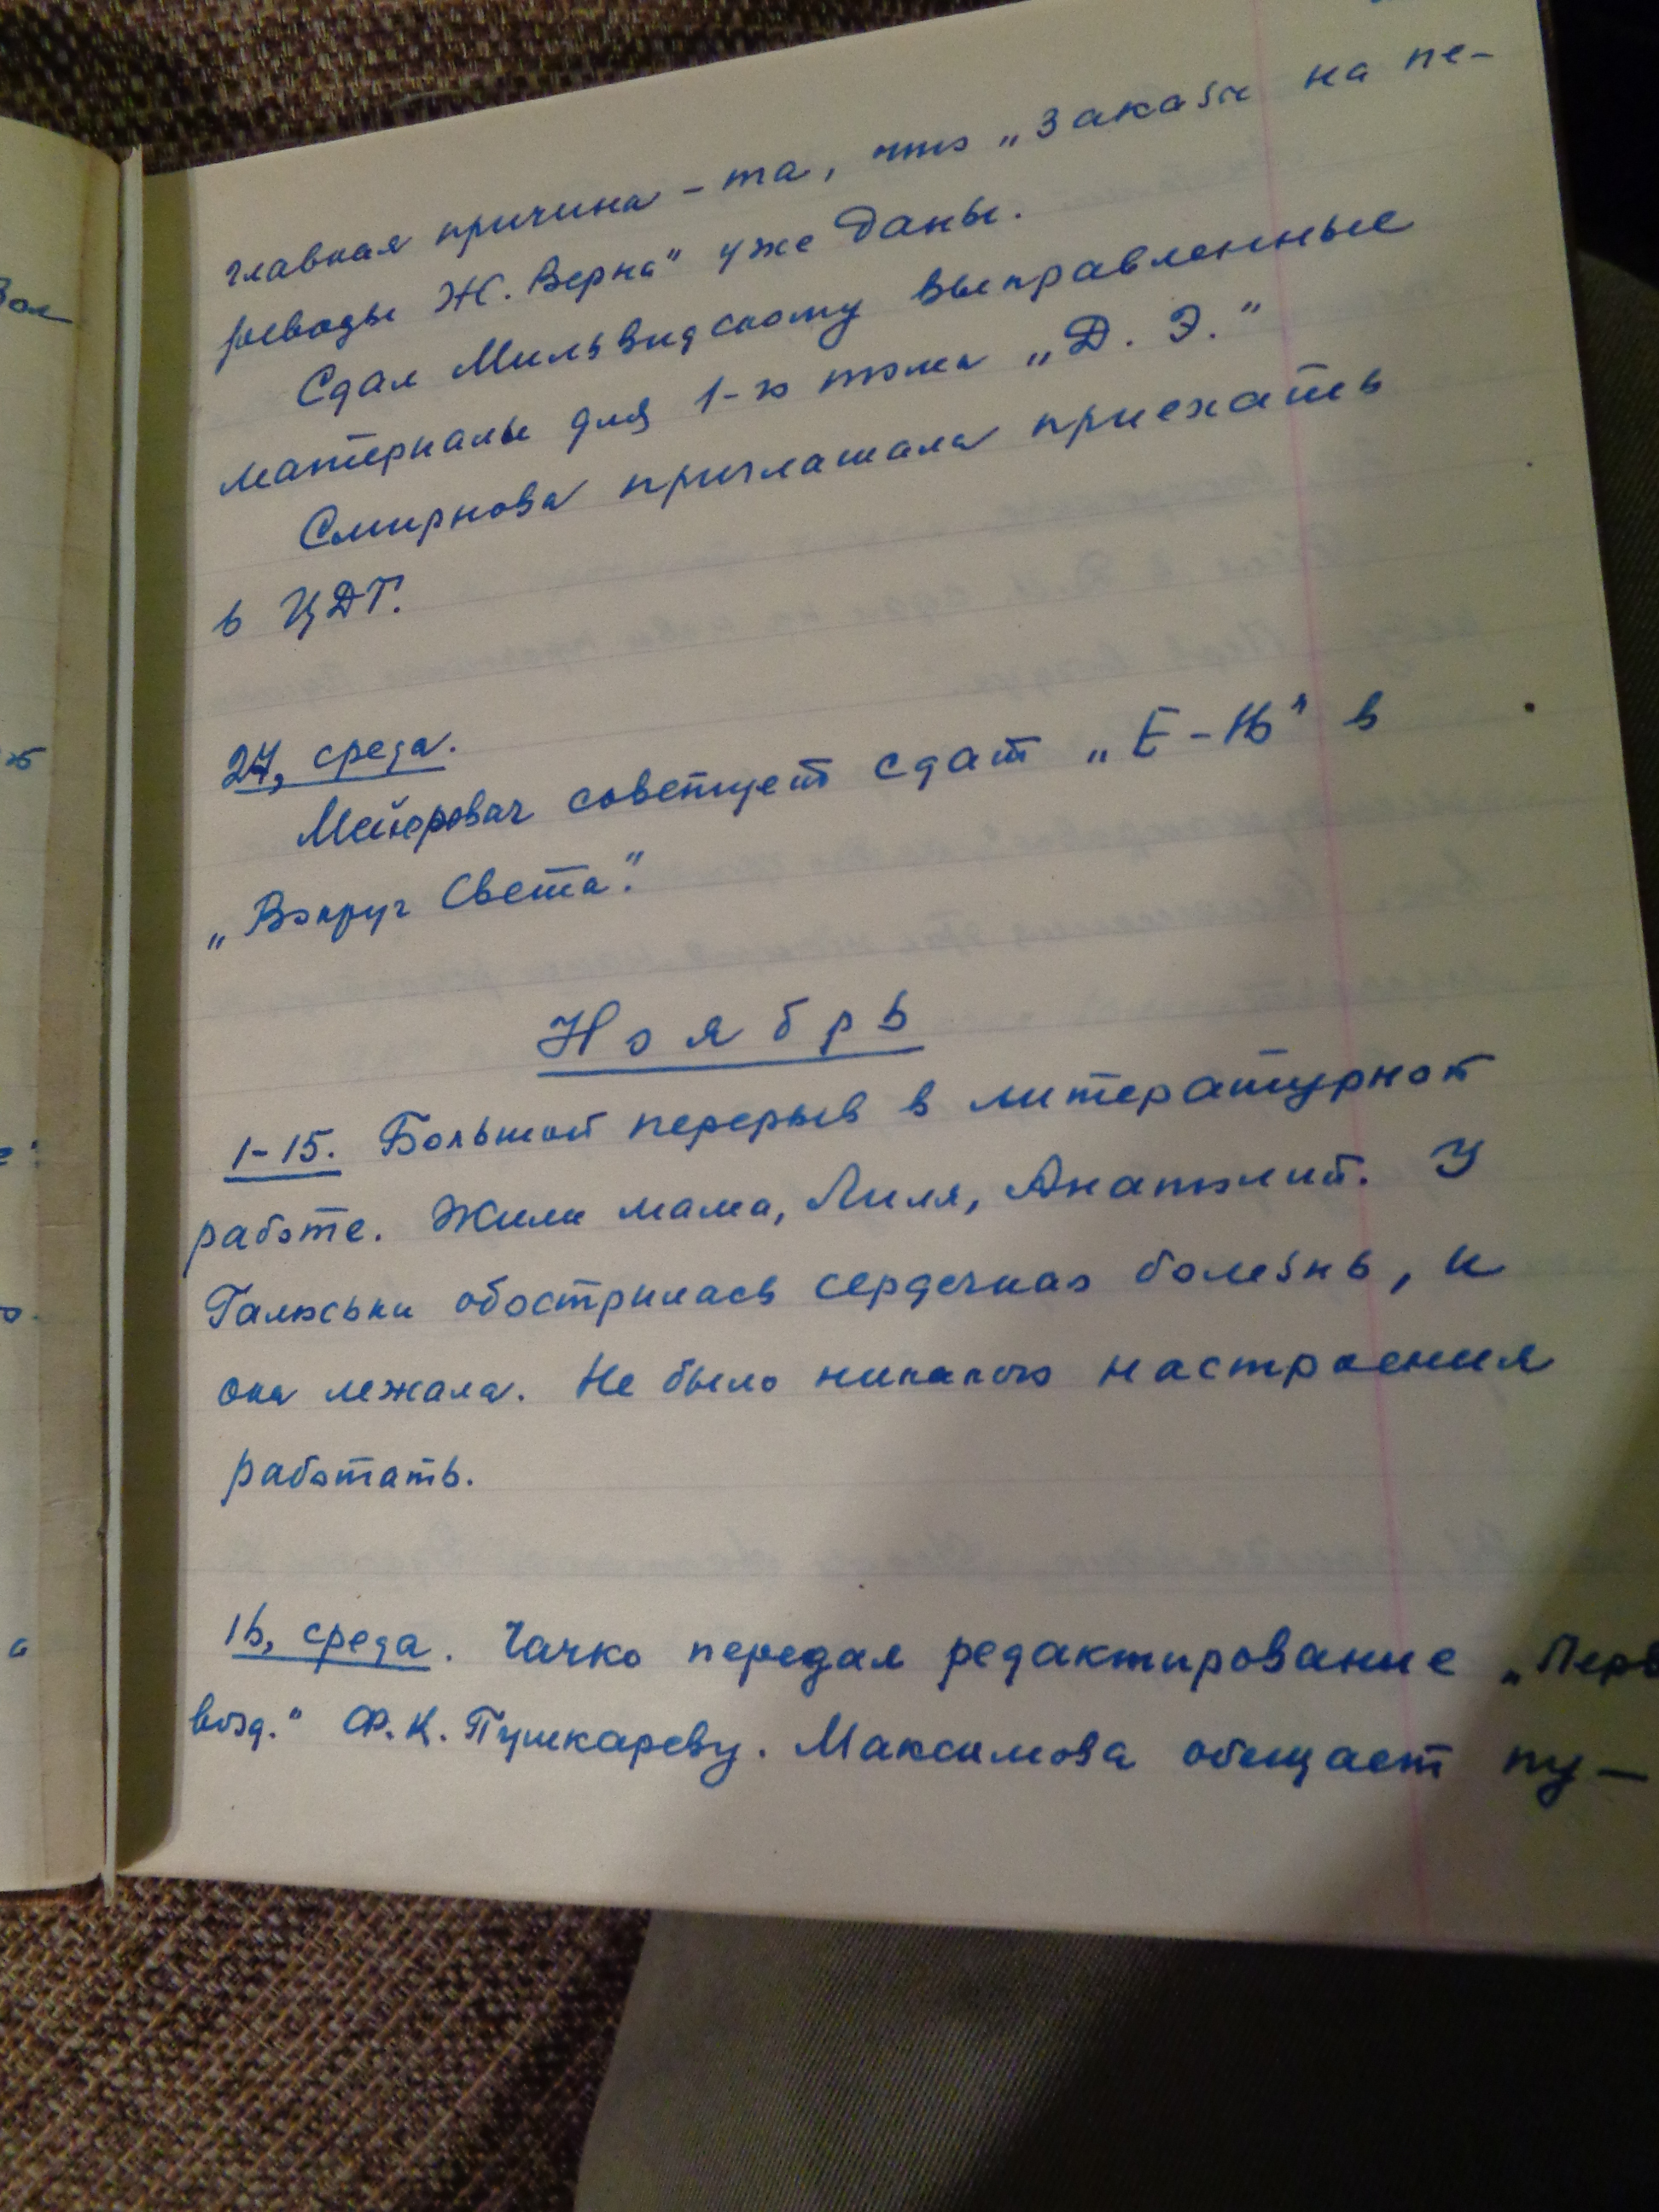 главная причина – та, что „Заказы на пе-
реводы Ж. Верна" уже даны.
Сдал Мильвидскому выправленные
материалы для 1-го тома „Д. Э."
Смирнова приглашала приехать
в ЦДТ.
27, среда.
Мейерович советует сдат „Е-Нь" в
„Вокруг Света".
Ноябрь
1-15. Большой перерыв в литературной
работе. Жили мама, Лиля, Анатолий. У
Галюськи обострилась сердечная болезнь, и
она лежала. Не было никакого настроения
работать.
16, среда. Чачко передал редактирование „Перв
возд." Ф.К. Пушкареву. Максимова обещает пу-